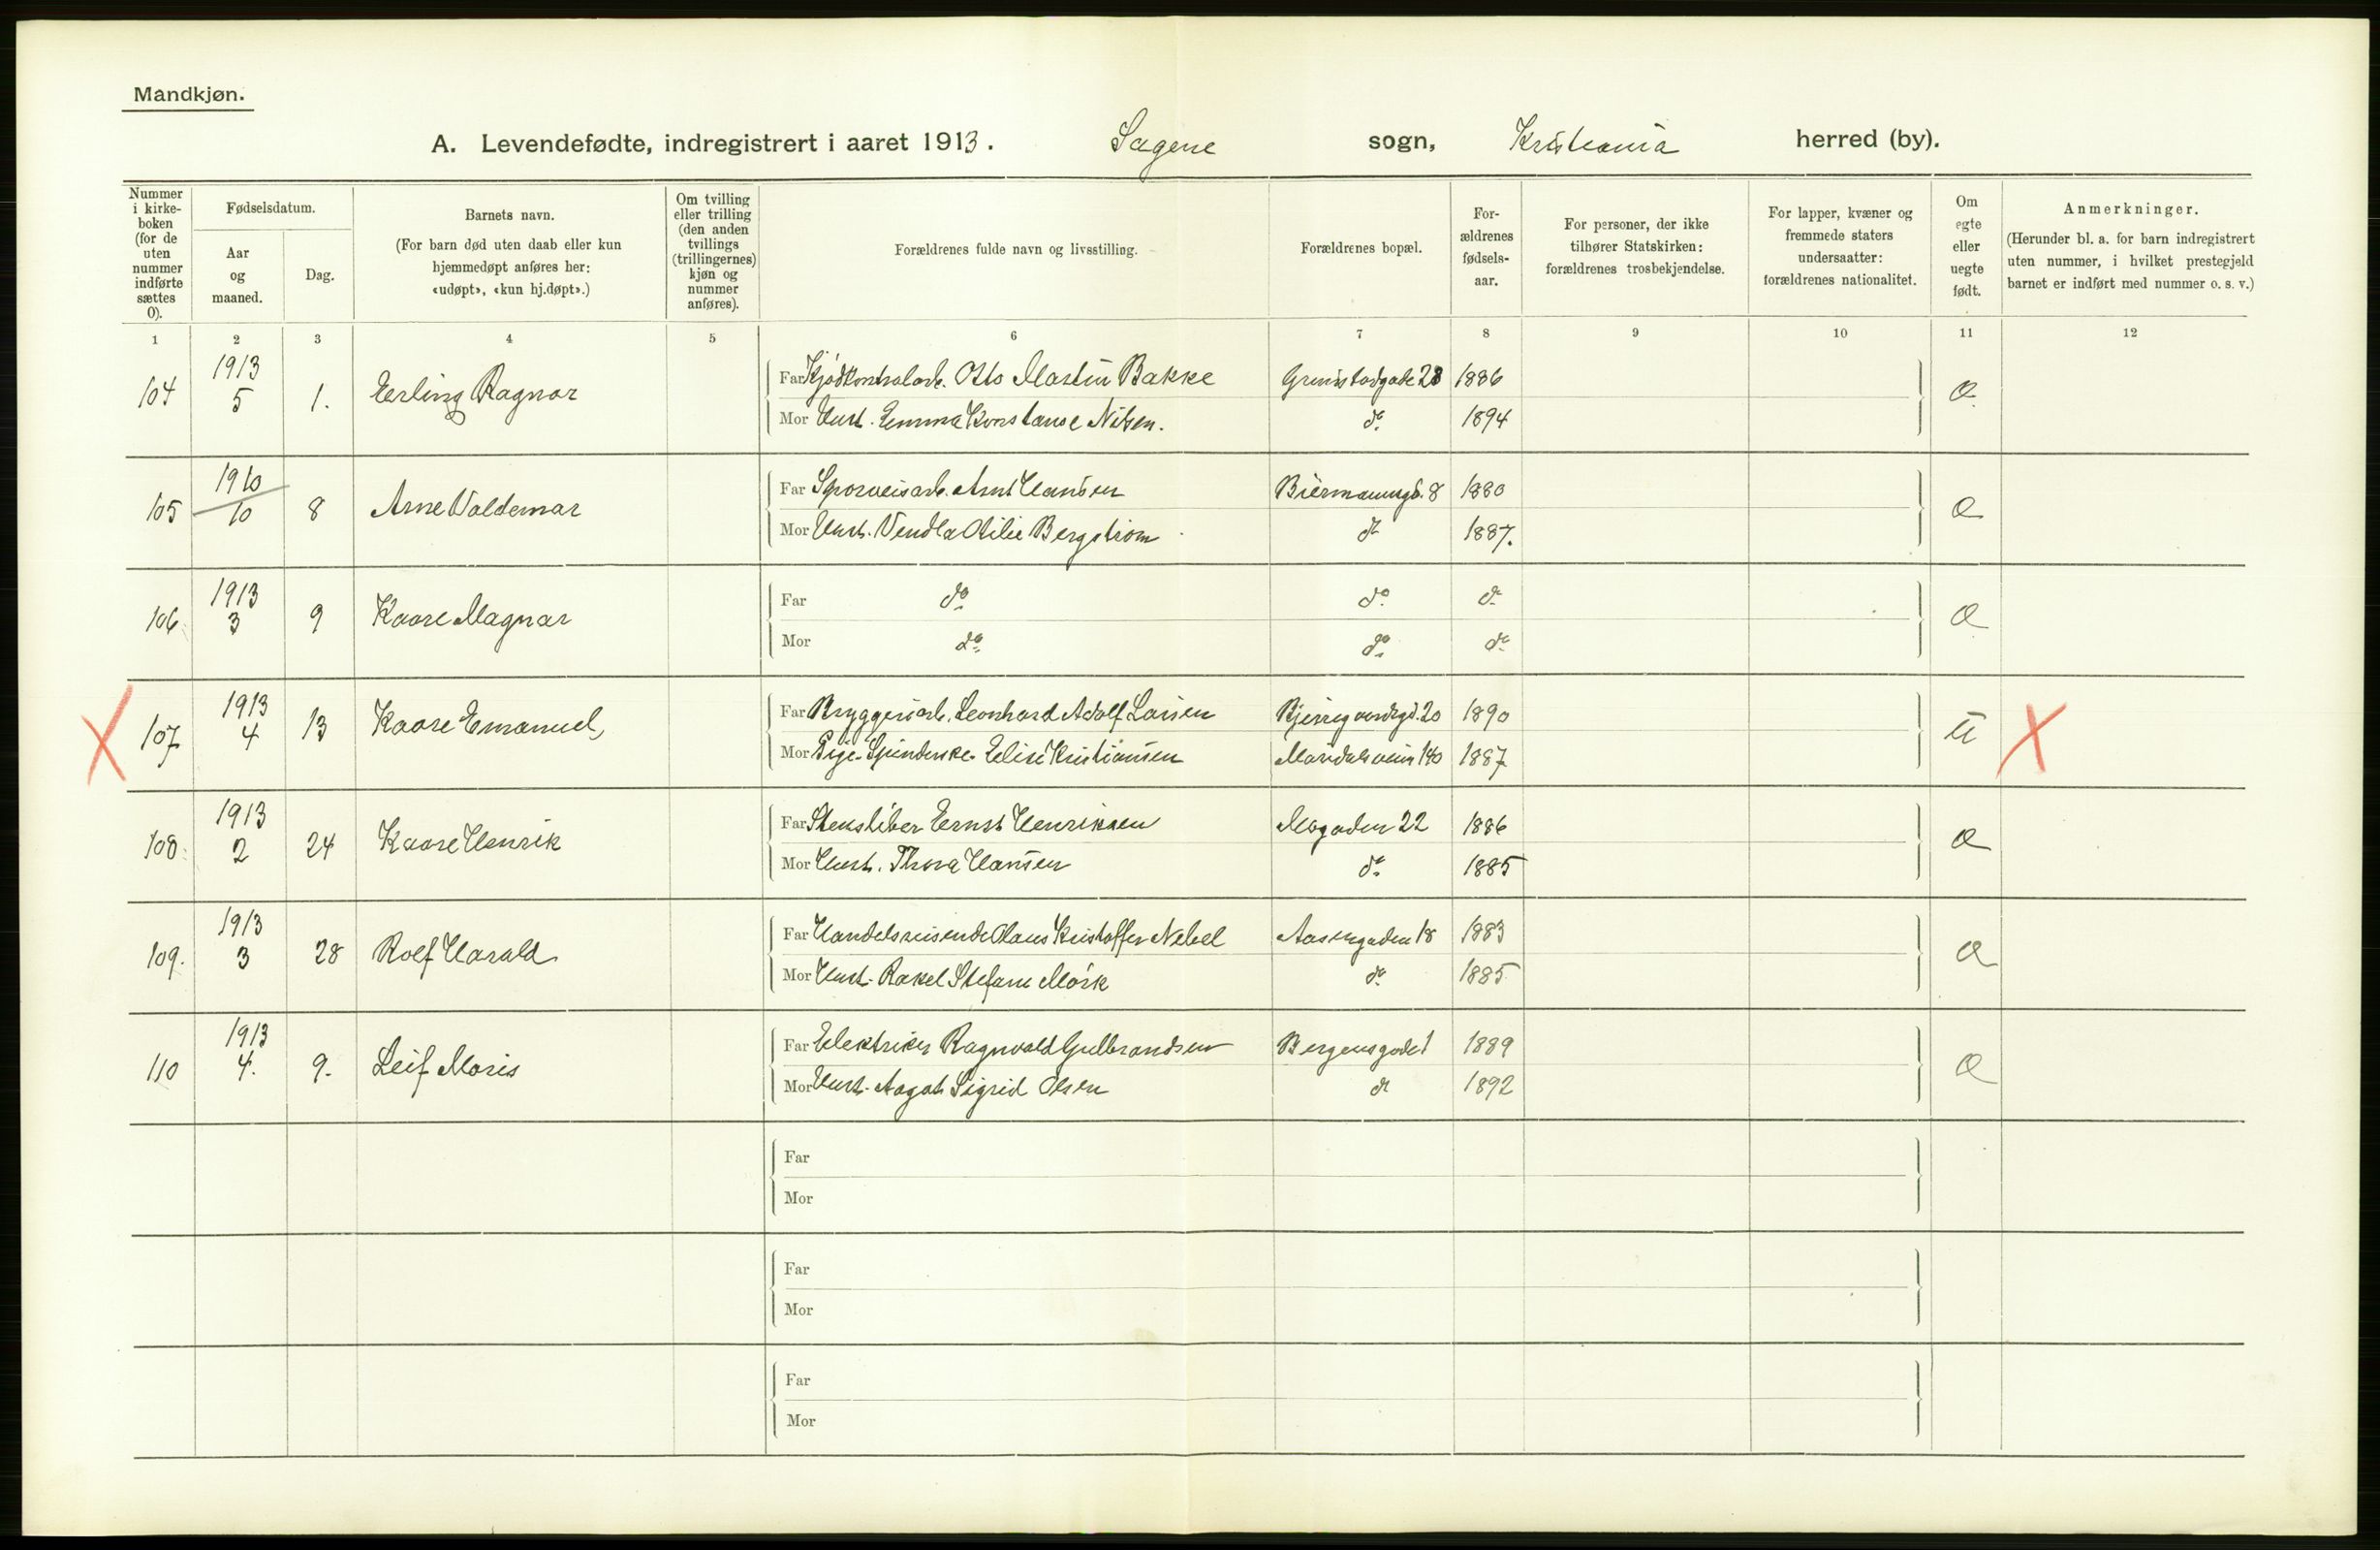 Mandkjøn.
A. Levendefødte, indregistrert i aaret 1913. Sagene sogn, Kristiania herred (by).
Nummer i kirke-boken (for de uten nummer indførte sættes 0).
Fødselsdatum.
Aar og maaned.
Dag.
Barnets navn.
(For barn død uten daab eller kun hjemmedøpt anføres her: «udøpt», «kun hj.døpt».)
Om tvilling eller trilling (den anden tvillings (trillingernes) kjøn og nummer anføres).
Forældrenes fulde navn og livsstilling.
Forældrenes bopæl.
For-ældrenes fødsels-aar.
For personer, der ikke tilhører Statskirken: forældrenes trosbekjendelse.
For lapper, kvæner og fremmede staters undersaatter: forældrenes nationalitet.
Om egte eller uegte født.
Anmerkninger.
(Herunder bl. a. for barn indregistrert uten nummer, i hvilket prestegjeld barnet er indført med nummer o. s. v.)
1 2 3 4 5 6 7 8 9 10 11 12
104 1913 5 1. Erling Ragnar
Far Kjødkontrolarb. Otto Martin Bakke Grimstadgade 28 1886
Mor Hust. Emma Konstanse Nilsen. do 1894
105 1910 10 8 Arne Valdemar
Far Sporveisarb. Arnt Hansen Biermannsgd. 8 1880
Mor Hust. Vendla Otilie Bergstrøm do 1887.
106 1913 3 9 Kaare Magnar
Far do do do
Mor do do do
107 1913 4 13 Kaare Emanuel
Far Bryggeriarb. Leonhard Adolf Larsen Bjerregaardsgd. 20 1890 u
Mor Pige- Spinderske- Elise Kristiansen Maridalsveien 140 1887
108 1913 2 24 Kaare Henrik
Far Ernst Henriksen Mogaden 22 1886
Mor Hust. Thora Hansen do 1885
109. 1913 3 28 Rolf Harald
Far Handelsreisende Olaus Kristoffer Nebel Aasengaden 18 1883
Mor Hust. Rakel Stefanie Mörk do 1885
110 1913 4. 9. Leif Moris
Far Elektriker Ragnvald Gulbrandsen Bergensgade 1 1889
Mor Hust. Aagot Sigrid Olsen do 1892
Far
Mor
Far
Mor
Far
Mor